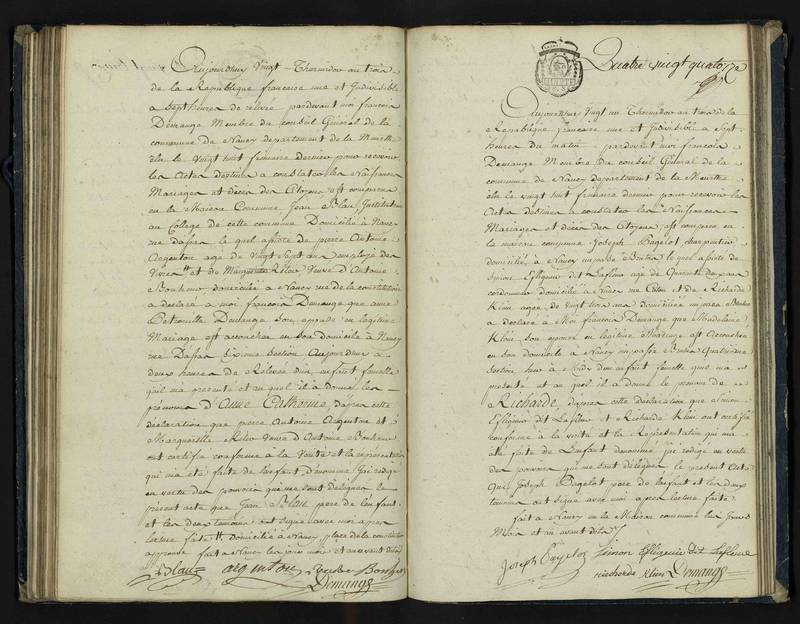 Aujourdhuy Vingt Thermidor an trois
de la Republique francoise une et Indivisible
a Sept heures de relevée pardevant moi francois
Demange Membre du Conseil General de la
commune de Nancy departement de la Meurthe
élu le vingt huit frimaire dernier pour recevoir
les Actes destinés a constater les Naissances
Mariages et décès des Citoyens est comparu
en la Maison Commune Jean Blau Instituteur
au College de cette commune Domicilié à Nancy
rue l'assisté de pierre Antoine
Argenton agé de Vingt Sept ans employé des
Vivres et de Marguerite Veuve d'Antoine
Bonhome domiciliée a Nancy rue de la constitution
a déclaré à moi francois Demange que anne
Petronille Demange Son epouse en legitime
Mariage est accouchée en son domicile à Nancy
rue section Aujourdhuy a
deux heures de Relevée d'un enfant femelle
qu'il m'a presenté et auquel il à donné les
prénoms d'Anne Catherine, d'après cette
déclaration que pierre Antoine Argenton et
Marguerite Veuve d'Antoine Bonhome
ont certifié conforme a la Vérité et la représentation
qui m'a été faite de l'enfant dénommé j'ai redigé
en vertu des pouvoirs qui me sont délégués le
présent acte que Jean Blau pere de l'enfant
et les deux temoins ont signé avec moi apres
lecture faite Domicilié a Nancy place de la constitution
approuvé fait a Nancy les jour mois et an avant dits
Blau argenton
Demange
Quatre vingt quatorze
Aujourdhuy Vingt un Thermidor an trois de la
Republique francaise une et Indivisible a Sept
heures du matin pardevant moi francois
Demange Membre du conseil General de la
commune de Nancy departement de la Meurthe
élu le vingt huit frimaire dernier pour recevoir les
Actes destinés a constater les Naissances
Mariages et décès des Citoyens, est comparu en
la maison commune Joseph Bagelot charpentier
domicilié à Nancy impasse Benit le quel assisté de
Simon Effligeur dit Lafleur agé de Quarante deux ans
cordonnier domicilié a Nancy rue et de Richarde
Klein agée de vingt trois ans domiciliée impasse
a déclaré a Moi francois Demange que Madelaine
Klein son epouse en legitime Mariage est Accouchée
en son domicile a Nancy impasse Benit Quatrieme
Section hier a Midy d'un enfant femelle que m'a
presenté et au quel il a donné le prenom de
Richarde, d'apres cette déclaration que Simon
Effligeur dit Lafleur et Richarde Klein ont certifié
conforme à la verité et la Representation qui m'a
été faite de l'enfant denommé j'ai redigé en vertu
des pouvoirs qui me sont délégués le present Acte
que Joseph Bagelot pere de l'enfant et les deux
temoins ont signé avec moi apres lecture faite
fait a Nancy en la Maison commune les jours
Mois et an avant dits
Joseph Simon Effligeur dit Lafleur
richarde klein Demange